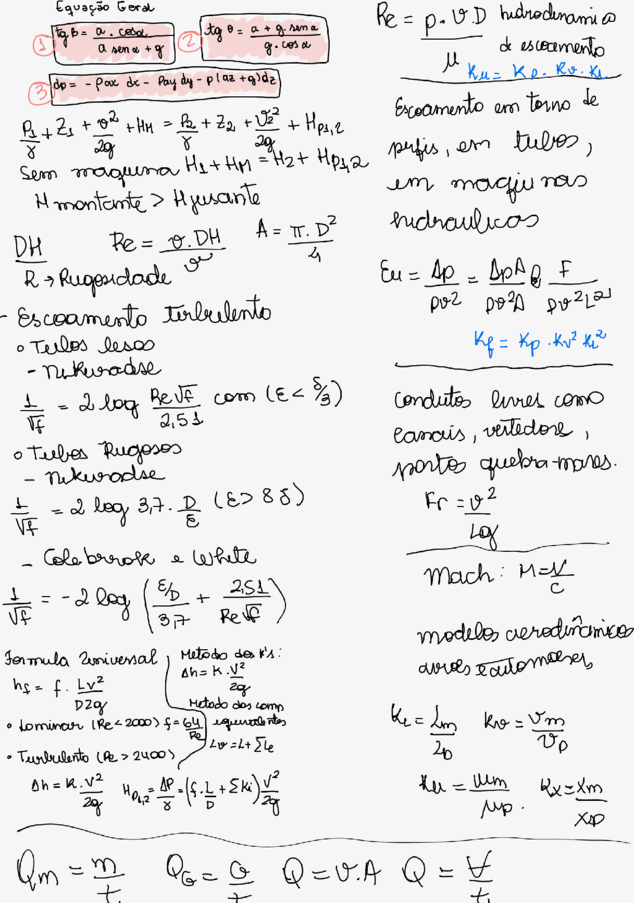 Equação Geral
① tg θ = a . cosα / a senα + g
② tg θ = a + g . senα / g . cosα
③ dp = - ρax dx - ρay dy - ρ(az + g)dz
P1/γ + Z1 + v²/2g + HM = P2/γ + Z2 + V2²/2g + Hp1,2
Sem maquina H1 + HM = H2 + Hp1,2
H montante > H jusante
DH
Re = v.DH/ν
A = π.D²/4
R → Rugosidade
- Escoamento turbulento
o Tubos lisos
- Nikuradse
1/√f = 2 log Re√f/2,51 com (ε < δ/3)
o Tubos Rugosos
- Nikuradse
1/√f = 2 log 3,7 . D/ε (ε > 8 δ)
- Colebrook e White
1/√f = -2 log (ε/D/3,7 + 2,51/Re√f)
Formula Universal
hf = f . Lv²/D2g
• Laminar (Re < 2000) f = 64/Re
• Turbulento (Re > 2400)
Δh = K . V²/2g
Metodo dos K's:
Δh = K . V²/2g
Metodo dos comp
equivalentes
Lv = L + ΣLe
Hp1,2 = ΔP/γ = (f . L/D + ΣKi) V²/2g
Re = ρ . v . D / μ
hidrodinamico
de escoamento
Kμ = Kρ . Kv . KL
Escoamento em torno de
perfis, em tubos,
em maquinas
hidraulicas
Eu = Δp/ρv² = ΔpA/ρv²A F/ρv²L²
Kf = Kρ . Kv² KL²
condutos livres como
canais, vertedore,
portos quebra-mares.
Fr = v²/Lg
Mach: M = V/c
modelos aerodinâmicos
avoes e automoveis
KL = Lm/Lp
Kv = Vm/Vp
Kμ = μm/μp .
Kx = Xm/Xp
Qm = m/t
QG = G/t
Q = v.A
Q = V/t